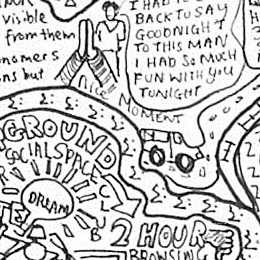 visible
from them
nomers
ns but
I HAD TO
BACK TO SAY
GOODNIGHT
TO THIS MAN
I HAD SO MUCH
FUN WITH YOU
TONIGHT
MOMENT
GROUND
SOCIAL SPACE
DREAM
2 HOUR
BROWSING